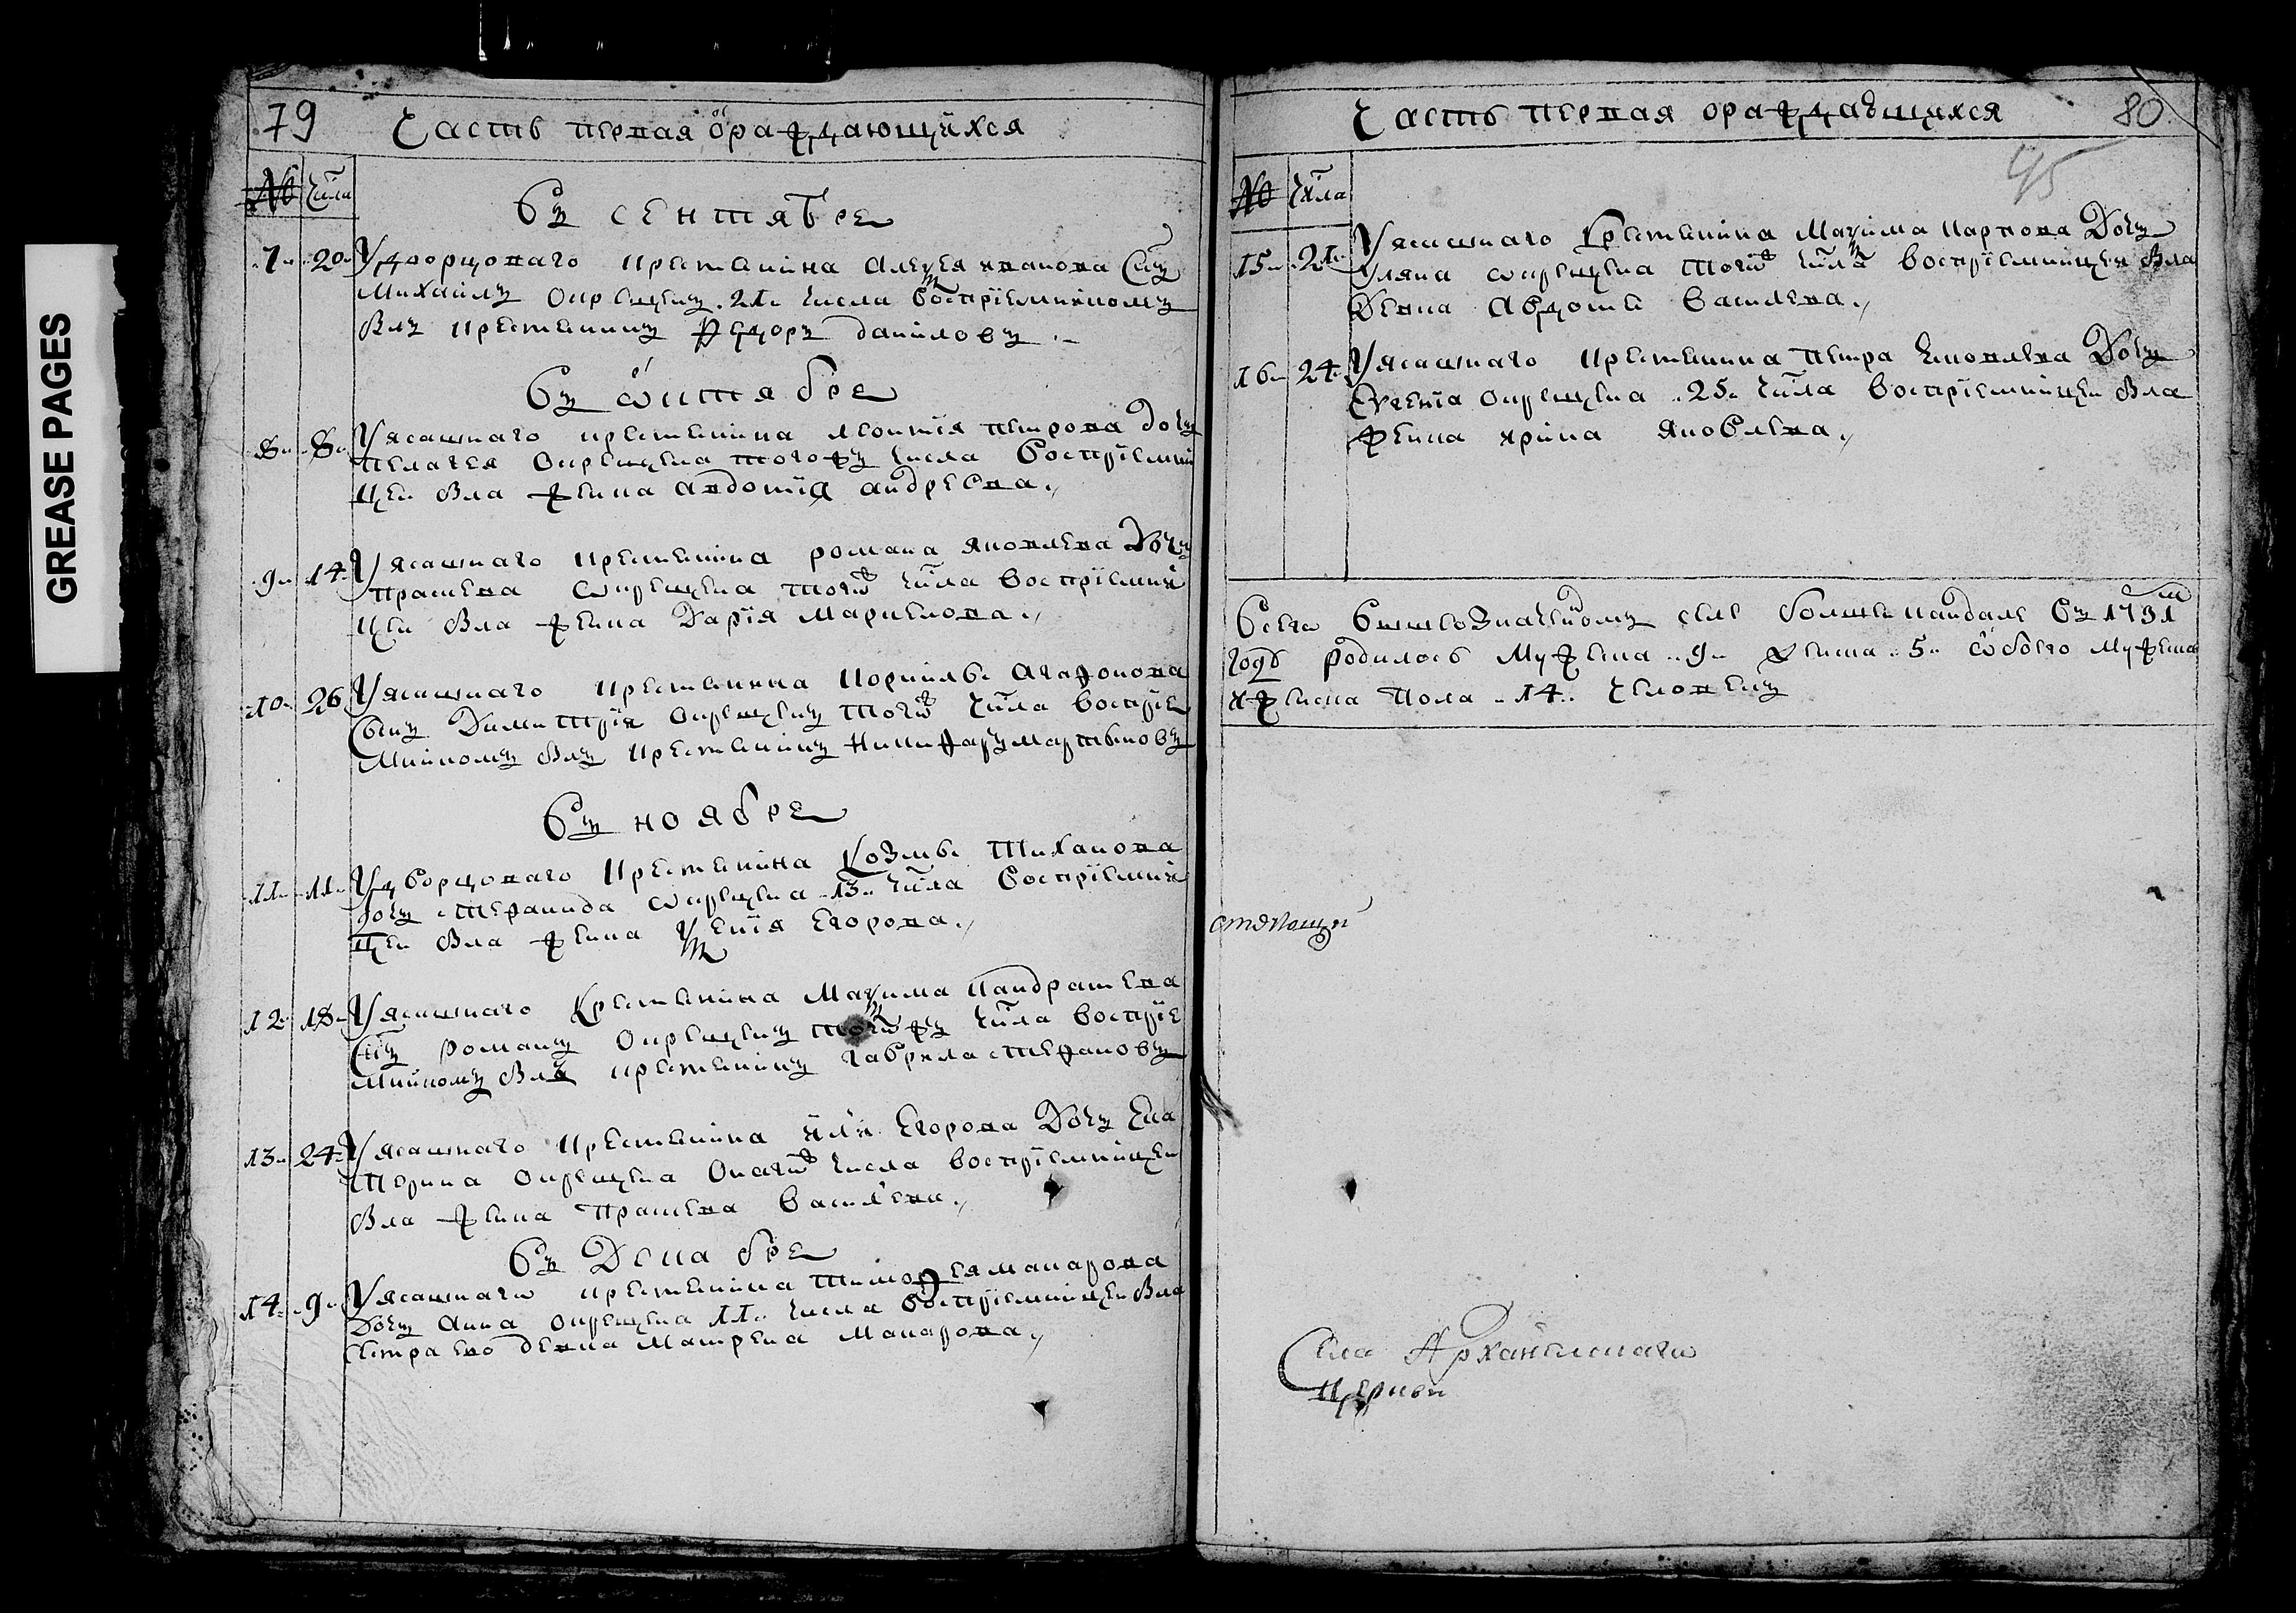 GREASE PAGES
79 Часть первая ѡ раждающихся
№ Числа
Въ сентябре
7 20 У дворцоваго крестьянина Алеѯея иванова сынъ
Михаилъ окрещенъ 21 числа воспріемникомъ
былъ крестьянинъ Ѳедоръ даниловъ
Въ ѡктябре
8 8 У ясашнаго крестьянина леонтїя петрова дочь
пелагея окрещена тогожъ числа воспріемни
цей была женка авдотїя андреева
9 14 У ясашнаго крестьянина романа яковлева дочь
прасковья ѡкрещена тогѡж числа воспріемни
цей была женка Дарїя Маркелова
10 26 У ясашнаго крестьянина корнилы агафонова
сынъ Димитрїй окрещенъ тогѡж числа воспріе
мникомъ былъ крестьянинъ Никифаръ мартыновъ
Въ ноябре
11 11 У дворцоваго крестьянина козмы тиханова
дочь стефанида ѡкрещена 13 числа воспріемни
цей была женка Ѯенїя Егорова
12 18 У ясашнаго крестьянина Маѯима кандратева
сынъ романъ окрещенъ тогѡжъ числа воспріе
мникомъ былъ крестьянинъ гаврила стефановъ
13 24 У ясашнаго крестьянина ильи Егорова дочь Ека
терина окрещена онагѡж числа воспріемницей
была женка праскева васильева
Въ Декабре
14 9 У ясашнагѡ крестьянина тимофея макарова
дочь Анна окрещена 11 числа воспріемницей была
сестра ево девка Матрена Макарова
Часть первая о раждающихся 80
45
№ Числа
15 21 У ясашнаго крестьянина Маѯима карпова дочь
Уляна ѡкрещена тогѡж числа воспріемницей была
девка Авдотья васильева
16 24 У ясашнаго крестьянина петра Яковлева дочь
Евгенїя окрещена 25 числа воспріемницей была
женка ирина Яковлева
Всего в вышеозначенномъ селе болшей кандале въ 1791м
годѣ родилось мужеска 9 женска 5 ѡбоего мужеска
и женска пола 14 человекъ
Села Архангелскагѡ
церкви